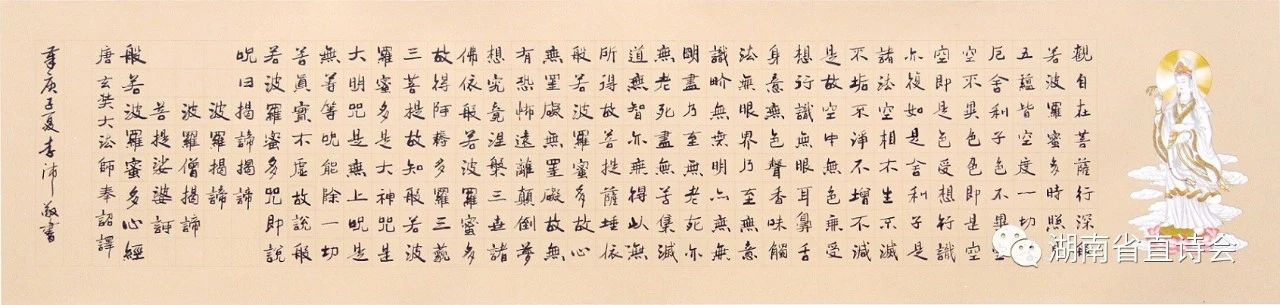 觀自在菩薩行深
若波羅蜜多時照
五蘊皆空度一切
厄舍利子色不異空
空不異色色即是空
空即是色受想行識
亦復如是舍利子是
諸法空相不生不滅
不垢不淨不增不減
是故空中無色無受
想行識無眼耳鼻舌
身意無色聲香味觸
法無眼界乃至無意
識畍無無明亦無無
明盡乃至無老死亦
無老死盡無苦集滅
道無智亦無得以無
所得故菩提薩埵依
般若波羅蜜多故心
無罣礙無罣礙故無
有恐怖遠離顛倒夢
想究竟涅槃三世諸
佛依般若波羅蜜多
故得阿耨多羅三藐
三菩提故知般若波
羅蜜多是大神咒是
大明咒是無上咒是
無等等咒能除一切
苦真實不虛故說般
若波羅蜜多咒即說
咒曰揭諦揭諦
波羅揭諦
波羅僧揭諦
菩提娑婆訶
般若波羅蜜多心經
唐玄奘大法師奉詔譯
庚子夏李沛敬書
湖南省直诗会